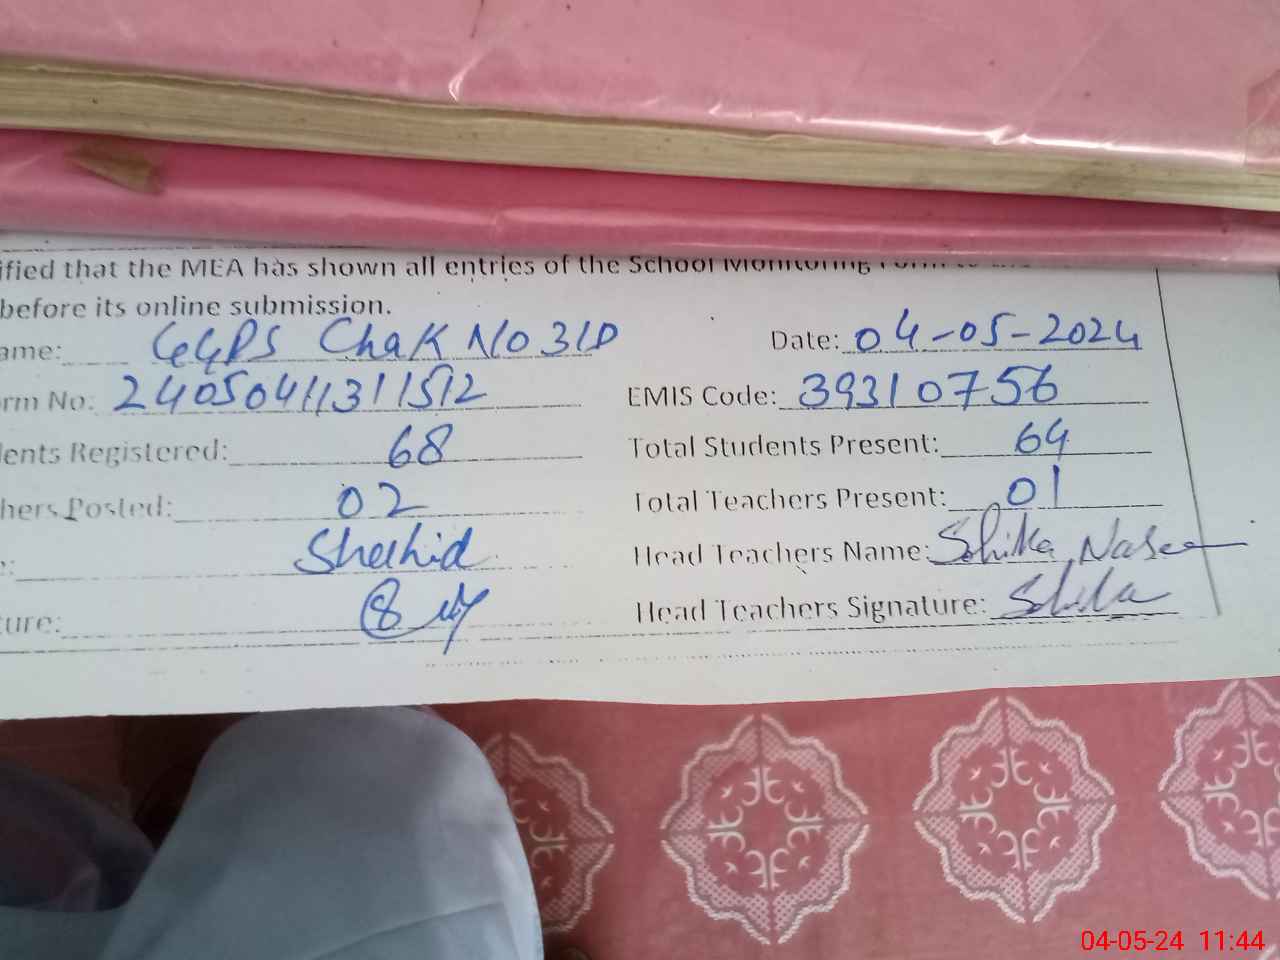 ified that the MEA has shown all entries of the School Monitoring Form to the
before its online submission.
ame: GGPS Chak No 31D Date: 04-05-2024
rm No: 24050411311512 EMIS Code: 39310756
lents Registered: 68 Total Students Present: 64
hers Posted: 02 Total Teachers Present: 01
: Shahid Head Teachers Name:
ture: Head Teachers Signature:
04-05-24 11:44